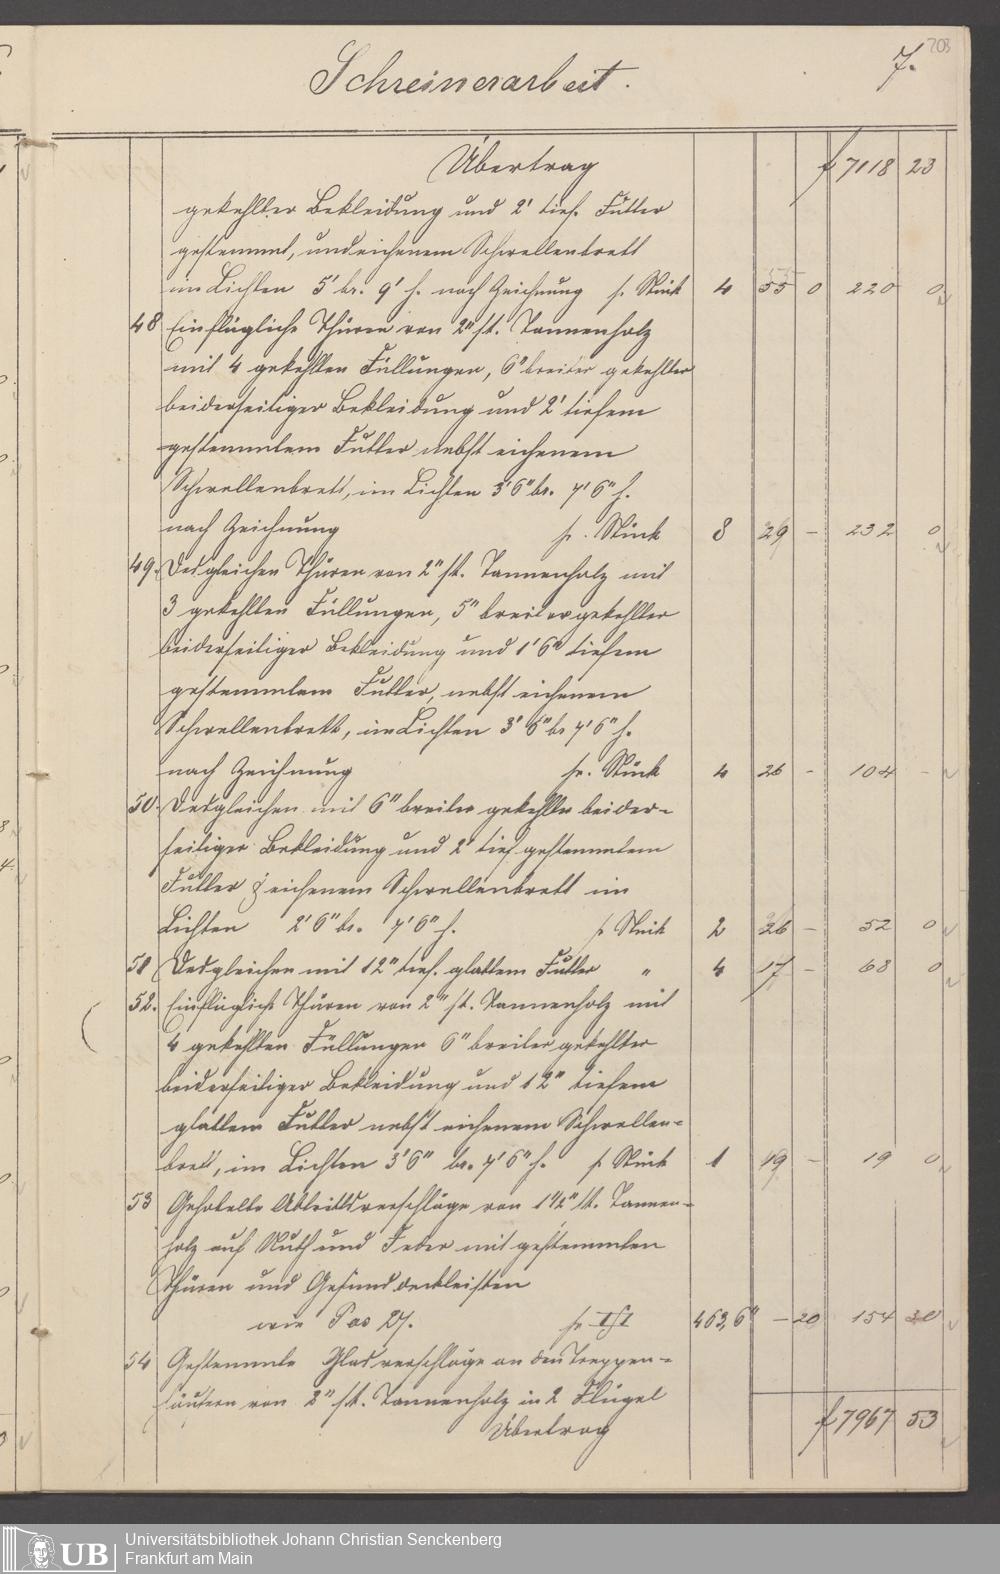 203
7.
Schreinerarbeit.
Übertrag f 7118 23
gekehlter Bekleidung und 2' tief. Futter
gestemmt, und eichenem Schwellenbrett
im Lichten 5' br. 9' h. nach Zeichnung p. Stück 4 55 0 220 0
48 Einflüglich Thüren von 2" st. Tannenholz
mit 4 gekehlten Füllungen, 6" breiter gekehlter
beiderseitiger Bekleidung und 2' tiefem
gestemmtem Futter nebst eichenem
Schwellenbrett, im Lichten 3' 6" br. 7' 6" h.
nach Zeichnung pr. Stück 8 29 – 232 0
49. Desgleichen Thüren von 2" st. Tannenholz mit
3 gekehlten Füllungen, 5" breiter gekehlter
beiderseitiger Bekleidung und 1' 6" tiefem
gestemmtem Futter, nebst eichenem
Schwellenbrett, im Lichten 3' 6" br 7' 6" h.
nach Zeichnung pr. Stück 4 26 – 104 –
50. Desgleichen mit 6" breiter gekehlter beider-
seitiger Bekleidung und 2' tief gestemmtem
Futter & eichenem Schwellenbrett im
Lichten 2' 6" br. 7' 6" h. p Stück 2 26 – 52 0
51 Desgleichen mit 12" tief. glattem Futter " 4 17 – 68 0
52. Einflüglich Thüren von 2" st. Tannenholz mit
4 gekehlten Füllungen 6" breiter gekehlter
beiderseitiger Bekleidung und 12" tiefem
glattem Futter nebst eichenem Schwellen-
brett, im Lichten 3' 6" br. 7' 6" h. p Stück 1 19 – 19 0
53 Gehobelte Abtrittsverschläge von 1 1/2" st. Tannen-
holz auf Nuth und Feder mit gestemmten
Thüren und Gesimsdeckleisten
wie Pos 27. pr □' 463,6" – 20 154 30
54 Gestemmte Glasverschläge an den Treppen-
häusern von 2" st. Tannenholz in 2 Flügel
Übertrag f 7967 53
UB
Universitätsbibliothek Johann Christian Senckenberg
Frankfurt am Main